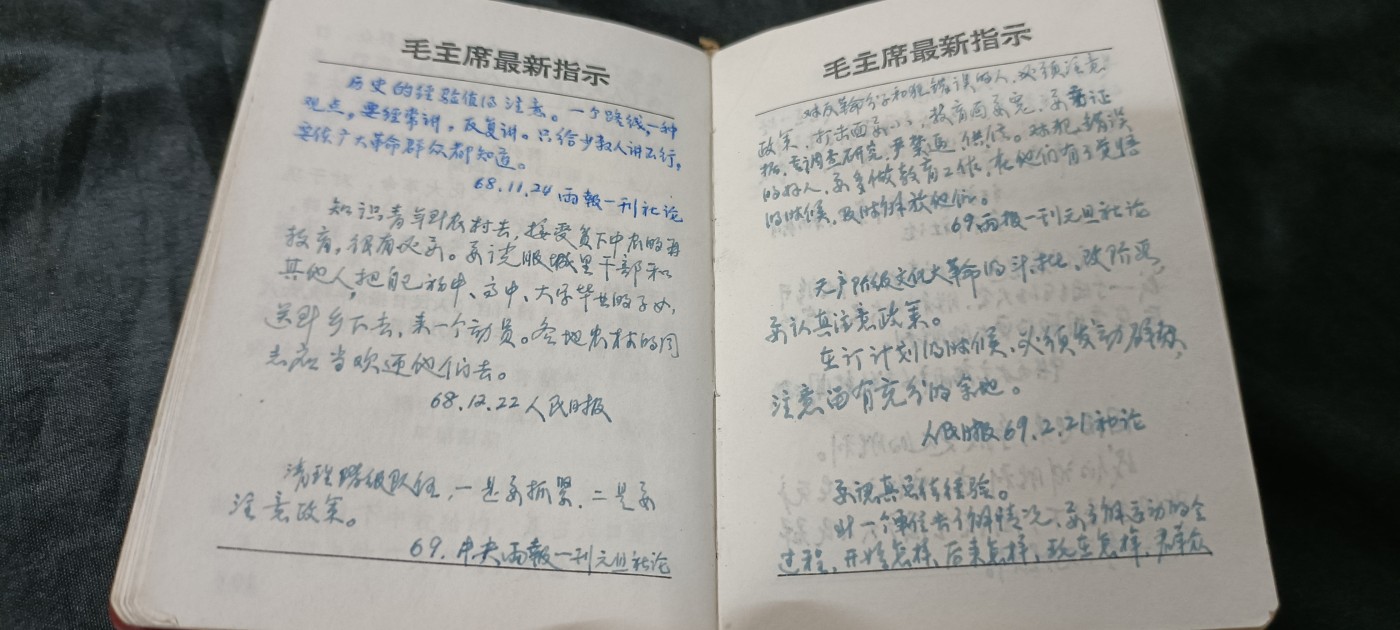 毛主席最新指示
历史的经验值得注意。一个路线,一种
观点,要经常讲,反复讲。只给少数人讲不行,
要使广大革命群众都知道。
68.11.24 两报一刊社论
知识青年到农村去,接受贫下中农的再
教育,很有必要。要说服城里干部和
其他人,把自己初中、高中、大学毕业的子女,
送到乡下去,来一个动员。各地农村的同
志应当欢迎他们去。
68.12.22 人民日报
清理阶级队伍,一是要抓紧,二是要
注意政策。
69.中央两报一刊元旦社论
毛主席最新指示
对反革命分子和犯错误的人,必须注意
政策,打击面要小,教育面要宽,要重证
据,重调查研究,严禁逼、供、信。对犯错误
的好人,要多做教育工作,在他们有了觉悟
的时候,及时解放他们。
69两报一刊元旦社论
无产阶级文化大革命的斗、批、改阶段,
要认真注意政策。
在订计划的时候,必须发动群众,
注意留有充分的余地。
人民日报 69.2.21社论
要认真总结经验。
到一个单位去了解情况,要了解运动的全
过程,开始怎样,后来怎样,现在怎样,群众